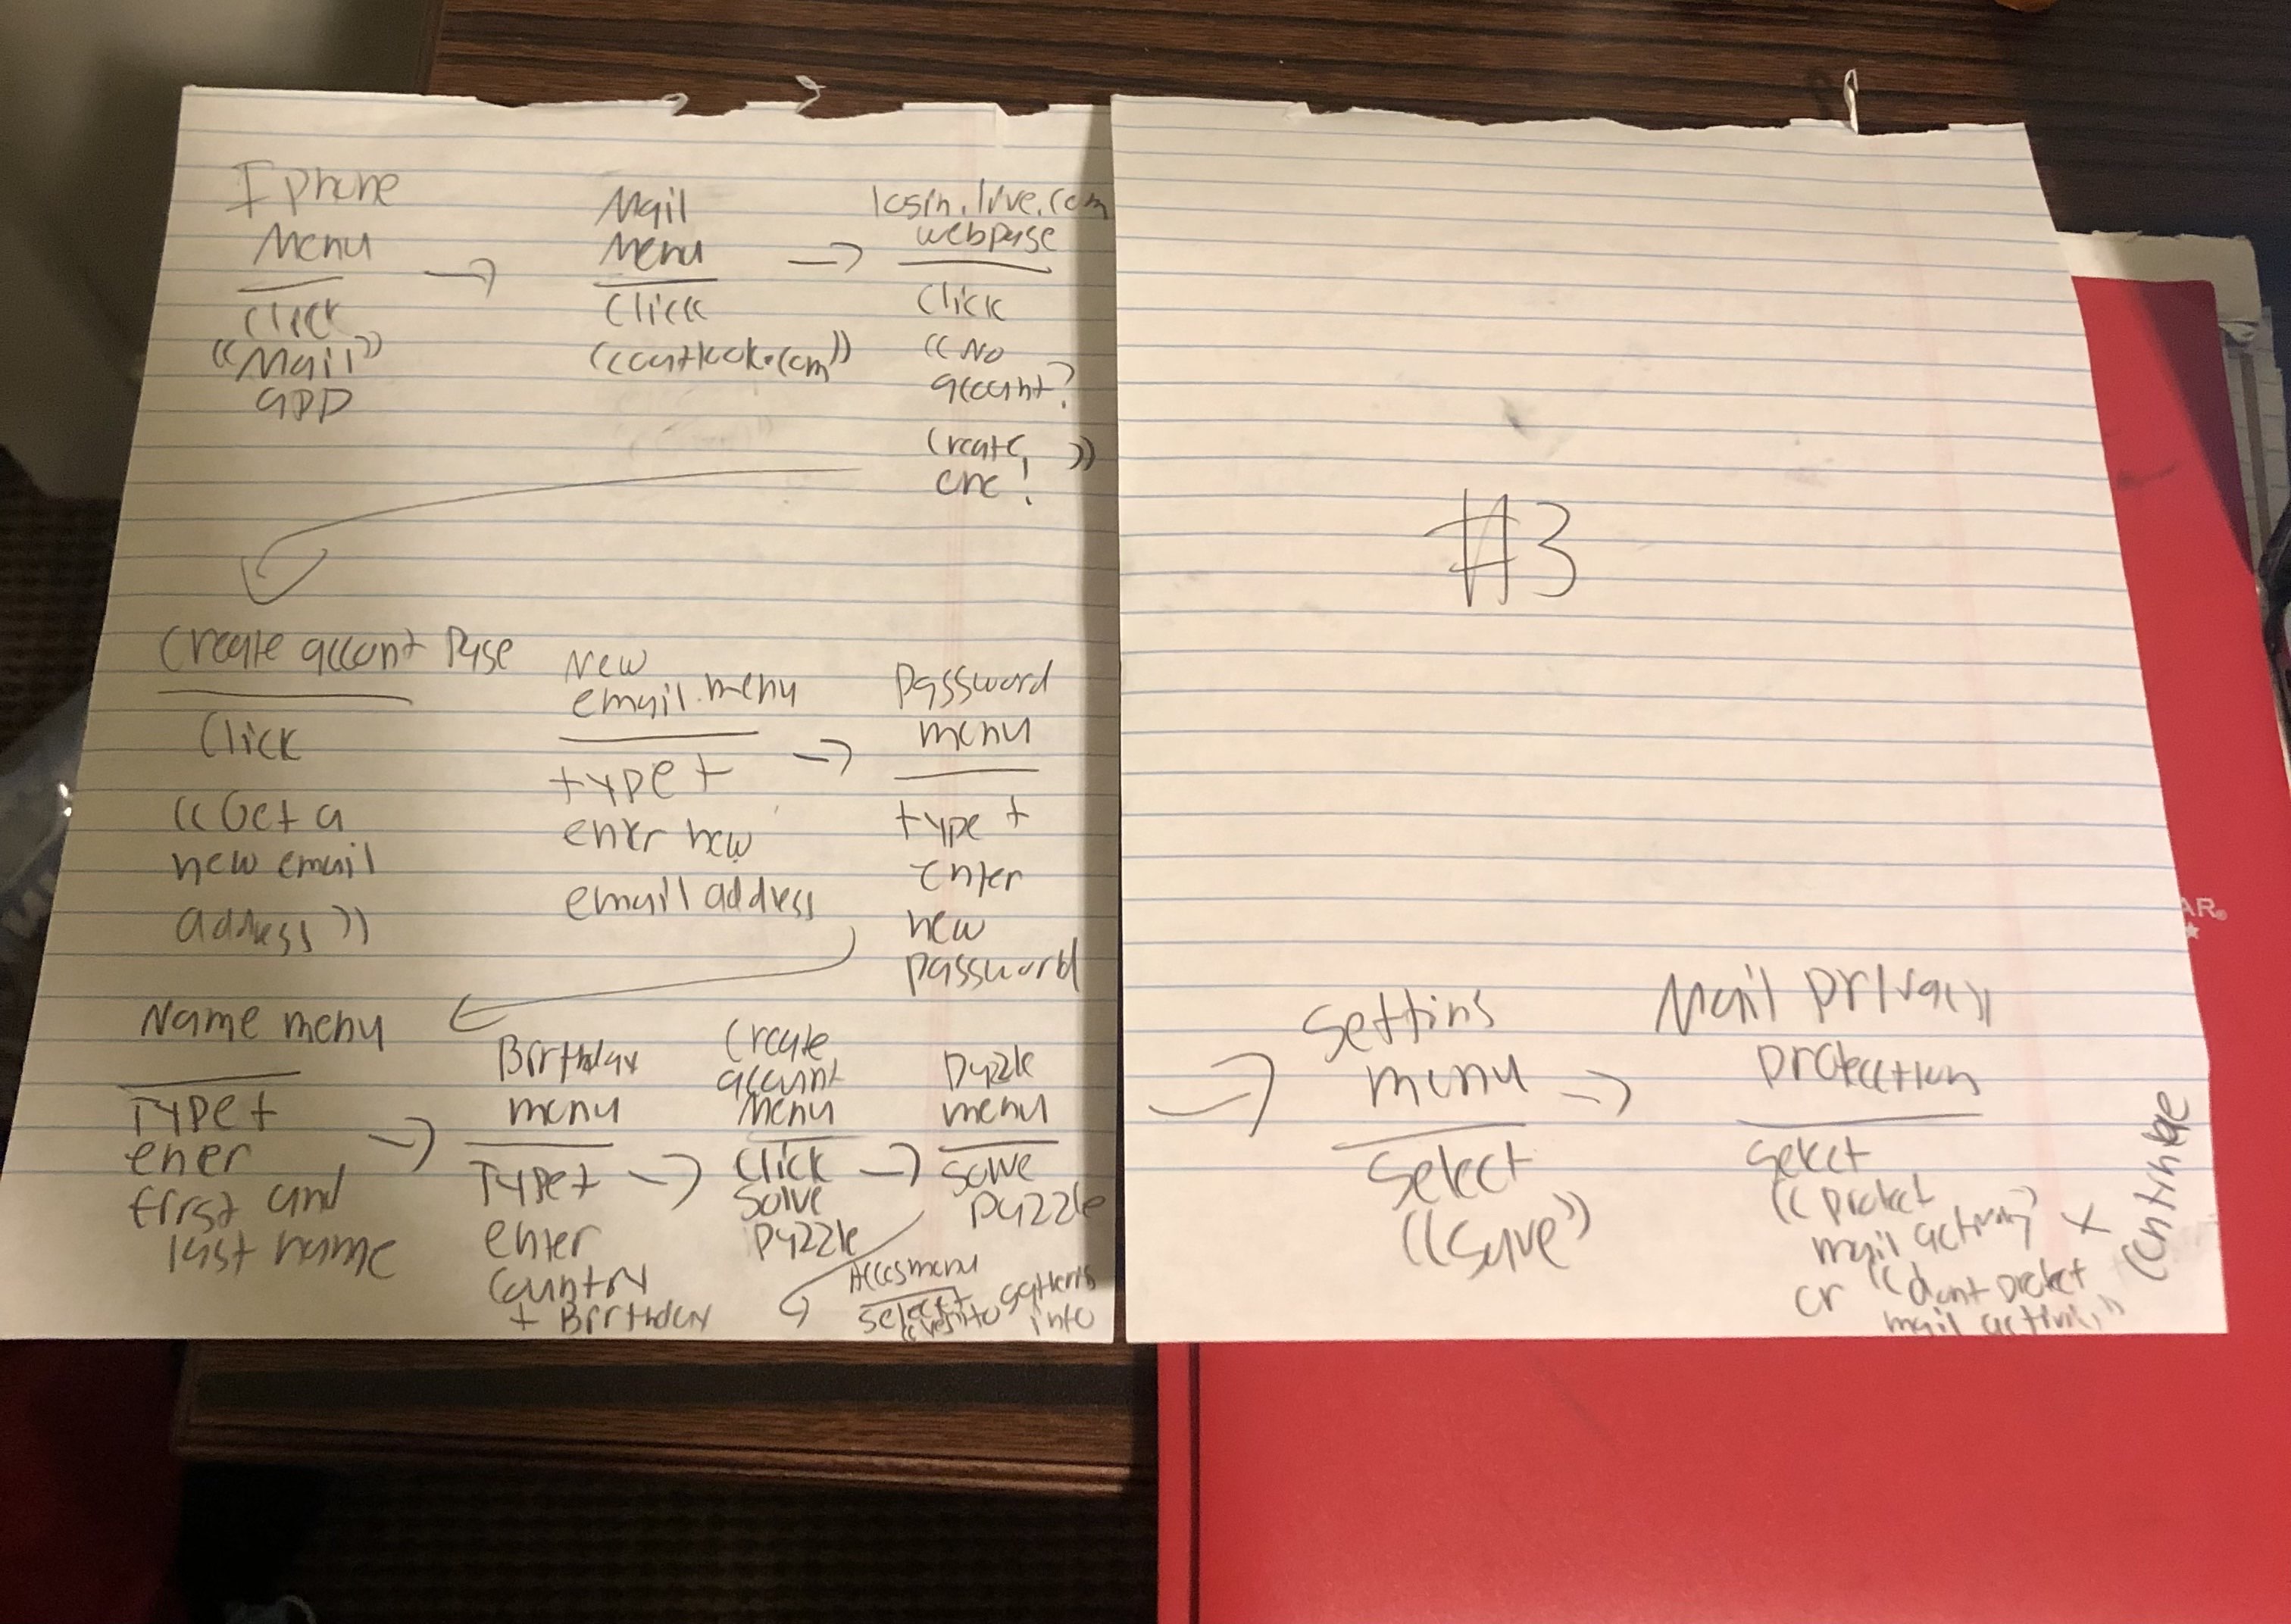 Iphone
Menu
click
"Mail"
app
→
Mail
Menu
Click
"outlook.com"
→
login.live.com
webpage
Click
"No
account?
Create
one!"
Create account Page
Click
"Get a
new email
address"
New
email menu
type +
enter new
email address
→
Password
menu
type +
enter
new
password
Name menu
Type +
ener
first and
last name
→
Birthday
menu
Type +
enter
Country
+ Birthday
→
Create
account
Menu
Click
Solve
puzzle
→
Puzzle
menu
solve
puzzle
Acces menu
select
gathering
info
#3
→
Settins
menu
Select
"Save"
→
Mail privacy
protection
Select
"protect
mail activity"
or "dont protect
mail activity"
x
Continue
AR®